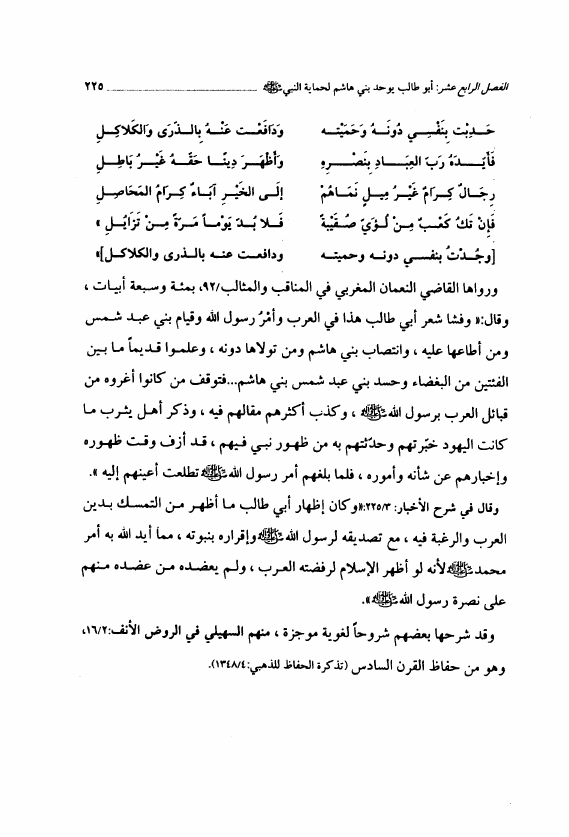 الفصل الرابع عشر: أبو طالب يوحد بني هاشم لحماية النبي ﷺ ٢٢٥
حَـدِبْت بِنَفْـسِي دُونَـهُ وَحَمَيْتـه وَدَافَعْـت عَنْـهُ بِالـذّرَى وَالكَلاكِـلِ
فَأَيّـدَهُ رَبّ العِبَـادِ بِنَصْـرِهِ وَأَظْهَـرَ دِينًـا حَقّـهُ غَيْـرُ بَاطِـلِ
رِجَـالٌ كِـرَامٌ غَيْـرُ مِيـلٍ نَمَـاهُمْ إلَـى الخَيْـرِ آبَـاءٌ كِـرَامُ المَحَاصِـلِ
فَإِنْ تَكُ كَعْـبٌ مِـنْ لُـؤَيّ صُـقَيْبَةً فَـلا بُـدّ يَوْمـاً مَـرّةً مِـنْ تَزَايُـلِ »
[وجُـدْتُ بنفسـي دونـه وحميتـه ودافعـت عنـه بالـذرى والكلاكـل]»
ورواها القاضي النعمان المغربي في المناقب والمثالب/٩٢، بمئة وسبعة أبيات ،
وقال:« وفشا شعر أبي طالب هذا في العرب وأمْرُ رسول الله وقيام بني عبـد شـمس
ومن أطاعها عليه ، وانتصاب بني هاشم ومن تولاها دونه ، وعلمـوا قـديمـاً مـا بـين
الفئتين من البغضاء وحسد بني عبد شمس بني هاشم...فتوقف من كانوا أغروه من
قبائل العرب برسول الله ﷺ ، وكذب أكثرهم مقالهم فيه ، وذكر أهـل يثرب مـا
كانت اليهود خبّرتهم وحدّثتهم به من ظهـور نبـي فيـهم ، قـد أزف وقـت ظهـوره
وإخبارهم عن شأنه وأموره ، فلما بلغهم أمر رسول الله ﷺ تطلعت أعينهم إليه ».
وقال في شرح الأخبار: ٢٢٥/٣:«وكان إظهار أبي طالب مـا أظهـر مـن التمسـك بـدين
العرب والرغبة فيه ، مع تصديقه لرسول الله ﷺ وإقراره بنبوته ، مما أيد الله به أمر
محمد ﷺ لأنه لو أظهر الإسلام لرفضته العـرب ، ولـم يعضـده مـن عضـده منـهم
على نصرة رسول الله ﷺ».
وقد شرحها بعضهم شروحاً لغوية موجزة ، منهم السهيلي في الروض الأنف:١٦/٢،
وهو من حفاظ القرن السادس (تذكرة الحفاظ للذهبي:١٣٤٨/٤).